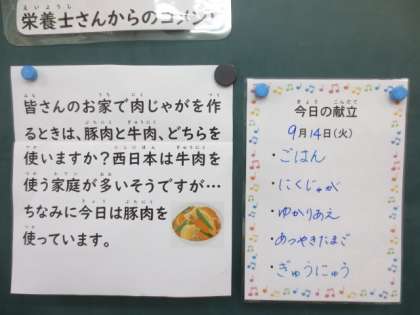 栄養士さんからのコメント
皆さんのお家で肉じゃがを作
るときは、豚肉と牛肉、どちらを
使いますか？西日本は牛肉を
使う家庭が多いそうですが…
ちなみに今日は豚肉を
使っています。
今日の献立
9月14日(火)
・ごはん
・にくじゃが
・ゆかりあえ
・あつやきたまご
・ぎゅうにゅう